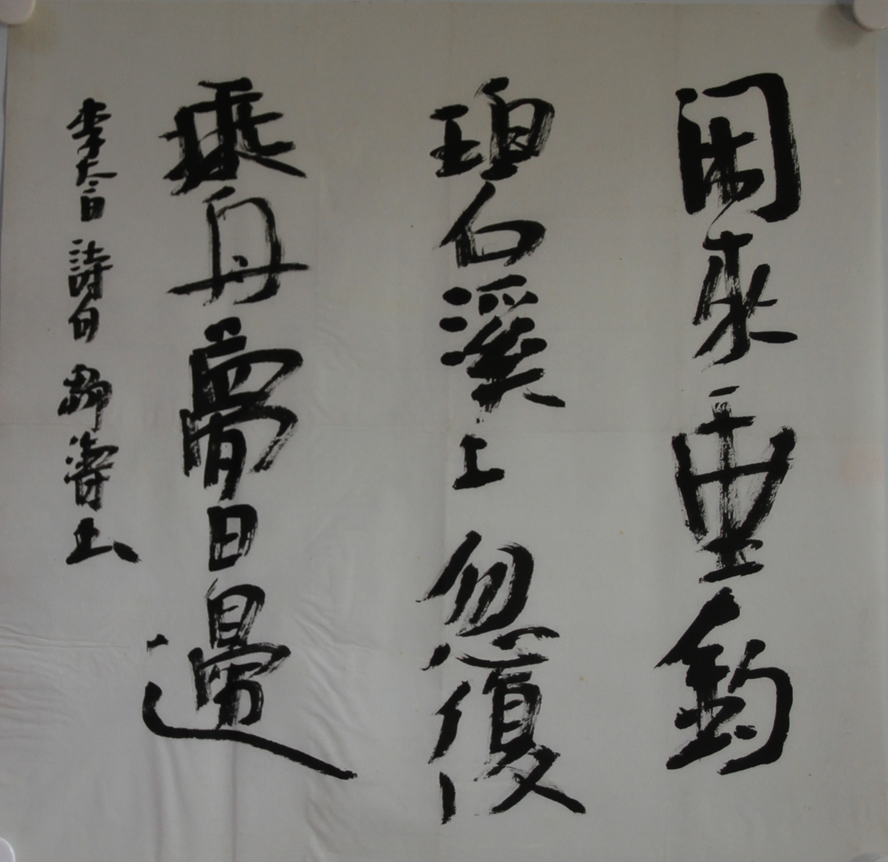 閑來垂釣
碧溪上忽復
乘舟夢日邊
李太白詩句